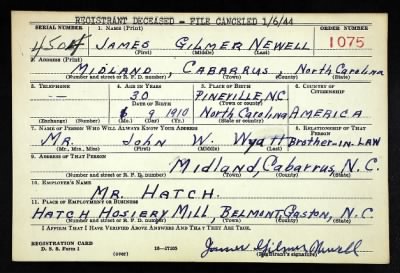 REGISTRANT DECEASED - FILE CANCELED 1/6/44
SERIAL NUMBER 1. NAME (Print) ORDER NUMBER
JAMES GILMER NEWELL 1075
(First) (Middle) (Last)
2. ADDRESS (Print)
MIDLAND, CABARRUS North Carolina
(Number and street or R. F. D. number) (Town) (County) (State)
3. TELEPHONE 4. AGE IN YEARS 5. PLACE OF BIRTH 6. COUNTRY OF CITIZENSHIP
30 PINEVILLE, N.C.
DATE OF BIRTH (Town or county)
-- 9 1910 North Carolina AMERICA
(Exchange) (Number) (Mo.) (Day) (Yr.) (State or country)
7. NAME OF PERSON WHO WILL ALWAYS KNOW YOUR ADDRESS 8. RELATIONSHIP OF THAT PERSON
MR. John W. Wyatt Brother-in-LAW
(Mr., Mrs., Miss) (First) (Middle) (Last)
9. ADDRESS OF THAT PERSON
Midland, Cabarrus, N.C.
(Number and street or R. F. D. number) (Town) (County) (State)
10. EMPLOYER'S NAME
MR. HATCH.
11. PLACE OF EMPLOYMENT OR BUSINESS
HATCH HOSIERY MILL, BELMONT, GASTON, N.C.
(Number and street or R. F. D. number) (Town) (County) (State)
I AFFIRM THAT I HAVE VERIFIED ABOVE ANSWERS AND THAT THEY ARE TRUE.
REGISTRATION CARD
D. S. S. Form 1 (over) 16-17105 James Gilmer Newell
(Registrant's signature)